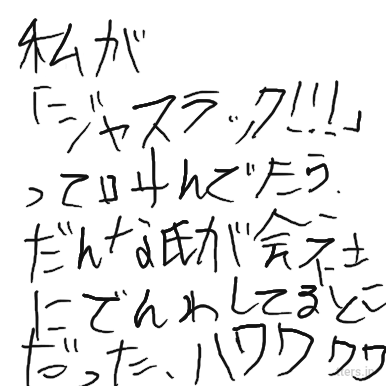 私が
「ジャスラック!!!」
って叫んでたら.
だんな氏が会社
にでんわしてるとこ
だった、ハワワワワ